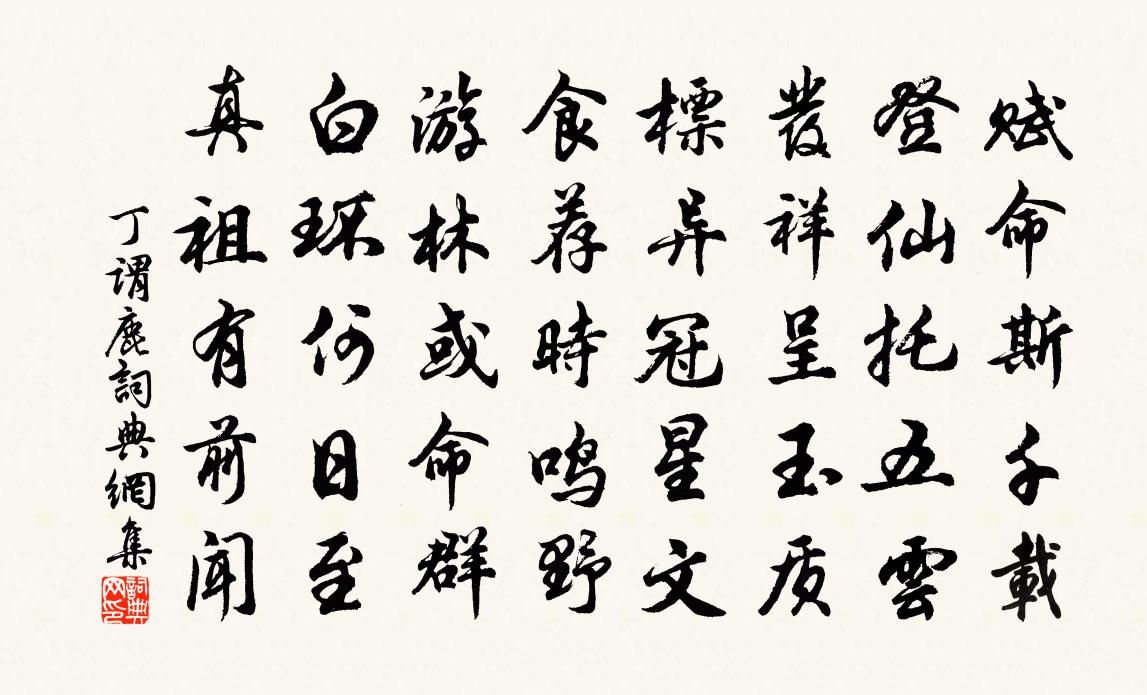 赋命斯千載
登仙托五雲
發祥呈玉质
標异冠星文
食荐時鸣野
游林或命群
白环何日至
真祖有前闻
丁謂鹿詞典網集
詞典网印